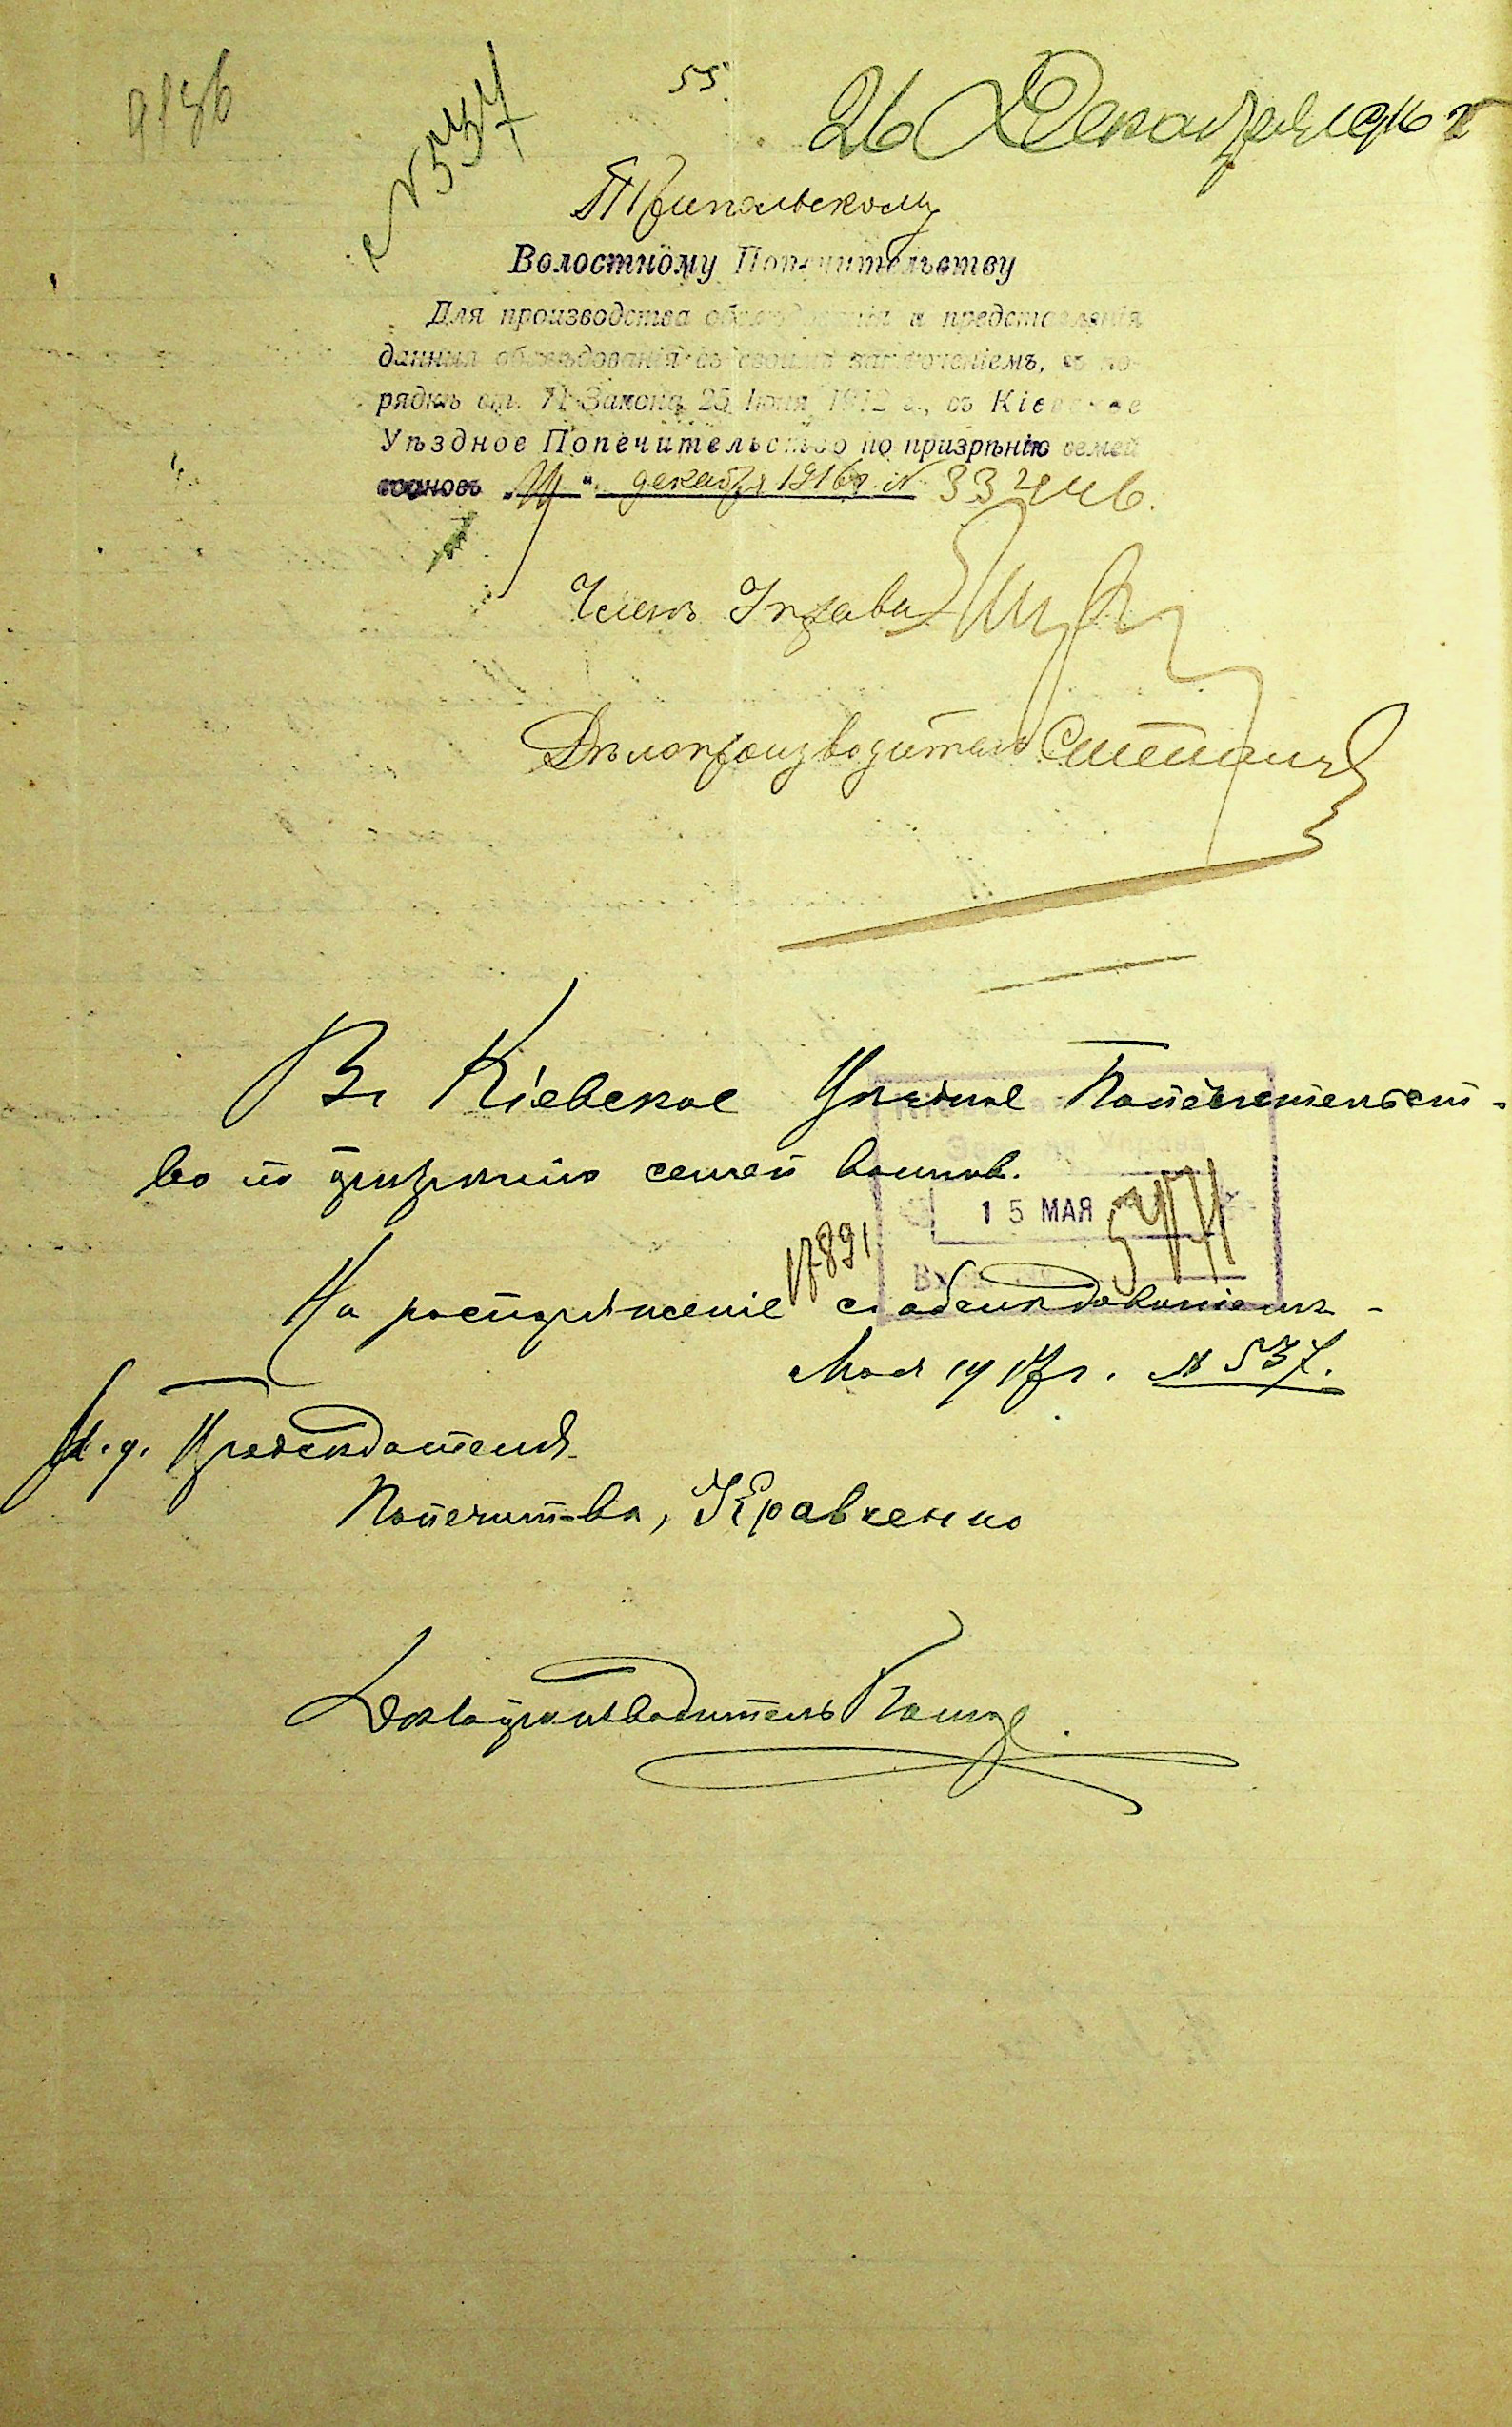 9136
№ 537
55.
26 Декабря 1916 г
Трипольскому
Волостному Попечительству
Для производства обслѣдованія и представленія
данныхъ обслѣдованія съ своимъ заключеніемъ, въ по-
рядкѣ ст. 71 Закона 25 Іюня 1912 г., въ Кіевское
Уѣздное Попечительство по призрѣнію семей
воиновъ " декабря 1916 г. №
Членъ Управы
Дѣлопроизводитель
Въ Кіевское Уѣздное Попечительст-
во по призрѣнію семей воиновъ.
15 МАЯ
17891
На распоряженіе съ обслѣдованіемъ -
Мая 1917 г. № 537.
И. д. Предсѣдателя
Попечит-ва, Кравченко
Дѣлопроизводитель